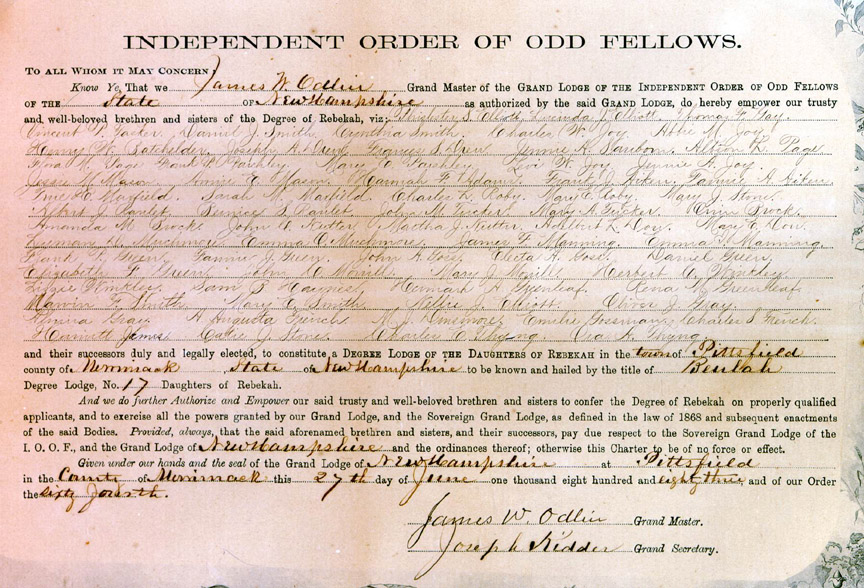 INDEPENDENT ORDER OF ODD FELLOWS.
TO ALL WHOM IT MAY CONCERN
Know Ye, That we James W. Odlin Grand Master of the GRAND LODGE OF THE INDEPENDENT ORDER OF ODD FELLOWS
OF THE State OF New Hampshire as authorized by the said GRAND LODGE, do hereby empower our trusty
and well-beloved brethren and sisters of the Degree of Rebekah, viz: S. Lucinda Thomas F. Day.
Vincent P. Daniel J. Smith, Cynthia Smith. Charles W. Joy Abbie M. Joy.
Henry W. Batchelder, Joseph A. Drew Frances S. Drew Jennie A. Sanborn. L. Page
Flora M. Page Frank P. Mary E. Levi W. Joy, Jennie A. Joy.
M. Mason, Annie E. Mason. Hannah F. Adams. Frank J. Aiken. Fannie A. Aiken.
E. Maxfield. Sarah M. Maxfield. Charles L. Roby. Mary E. Roby. Mary J. Stone.
Albert J. Bernice S. John M. Tucker Mary A. Tucker. Ann Brock.
Amanda M. Brock. John C. Rutter, Martha J. Rutter, Adelbert L. Dow. Mary E. Dow.
Truman H. Muchmore, Emma C. Muchmore. James F. Manning. Emma S. Manning
Frank P. Green, Fannie J. Green. John A. Goss, Electa A. Goss. Daniel Green,
Elizabeth F. Green, John C. Merrill. Mary J. Merrill. Herbert O. Winkley.
Lizzie Winkley. Sam B. Haines, Hannah A. Greenleaf. Rena M. Greenleaf.
F. Smith. Mary E. Smith. Nellie J. Elliott. Oliver J. Gray.
Emma Gray. A. Augusta French. M. J. Emilie Freeman, Charles S. French.
Hannah James Katie J. Stone. Charles E. Ora A.
and their successors duly and legally elected, to constitute a DEGREE LODGE OF THE DAUGHTERS OF REBEKAH in the town of Pittsfield
county of Merrimack State of New Hampshire to be known and hailed by the title of Beulah
Degree Lodge, No. 17 Daughters of Rebekah.
And we do further Authorize and Empower our said trusty and well-beloved brethren and sisters to confer the Degree of Rebekah on properly qualified
applicants, and to exercise all the powers granted by our Grand Lodge, and the Sovereign Grand Lodge, as defined in the law of 1868 and subsequent enactments
of the said Bodies. Provided, always, that the said aforenamed brethren and sisters, and their successors, pay due respect to the Sovereign Grand Lodge of the
I. O. O. F., and the Grand Lodge of New Hampshire and the ordinances thereof; otherwise this Charter to be of no force or effect.
Given under our hands and the seal of the Grand Lodge of New Hampshire at Pittsfield
in the County of Merrimack this 27th day of June one thousand eight hundred and eighty three and of our Order
the sixty fourth.
James W. Odlin Grand Master.
Joseph Kidder Grand Secretary.